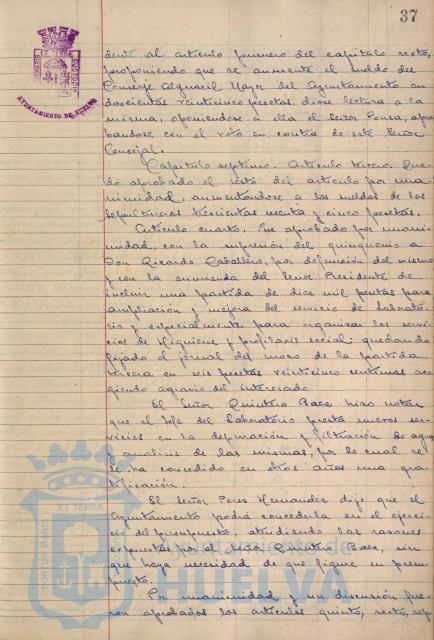 37
dente al artículo primero del capítulo sexto,
proponiendo que se aumente el sueldo del
Conserje Alguacil Mayor del Ayuntamiento en
doscientas veinticinco pesetas, diose lectura a la
misma, oponiendose a ella el Señor Ponce, apro
bandose con el voto en contra de este Señor
Concejal.
Capítulo septimo. Artículo tercero. Que-
do aprobado el resto del artículo por una-
nimidad, aumentandose a los sueldos de los
sepultureros trescientas sesenta y cinco pesetas.
Artículo cuarto. Fue aprobado por unani-
midad, con la supresión del quinquenio a
Don Ricardo Caballero, por defunción del mismo
y con la enmienda del Señor Presidente de
incluir una partida de diez mil pesetas para
ampliación y mejora del servicio de Laborato-
rio y especialmente para organizar los servi-
cios de Higiene y profilaxis social; quedando
fijado el jornal del mozo de la partida
tercera en seis pesetas veinticinco centimos aco
giendo agravio del interesado
El Señor Quintero Baez hizo notar
que el Jefe del Laboratorio presta nuevos ser-
vicios en la depuración y filtración de aguas
y analisis de las mismas, por lo cual se
le ha concedido en otros años una gra-
tificación.
El Señor Perez Hernandez dijo que el
Ayuntamiento podrá concederla en el ejerci-
cio del presupuesto, atendiendo las razones
expuestas por el Señor Quintero Baez, sin
que haya necesidad de que figure en presu-
puesto.
Por unanimidad y sin discusión fue-
ron aprobados los artículos quinto, sexto, sep
AYUNTAMIENTO DE HUELVA
ET TERRA
PORTUS MARIS
CUSTODIA
HUELVA